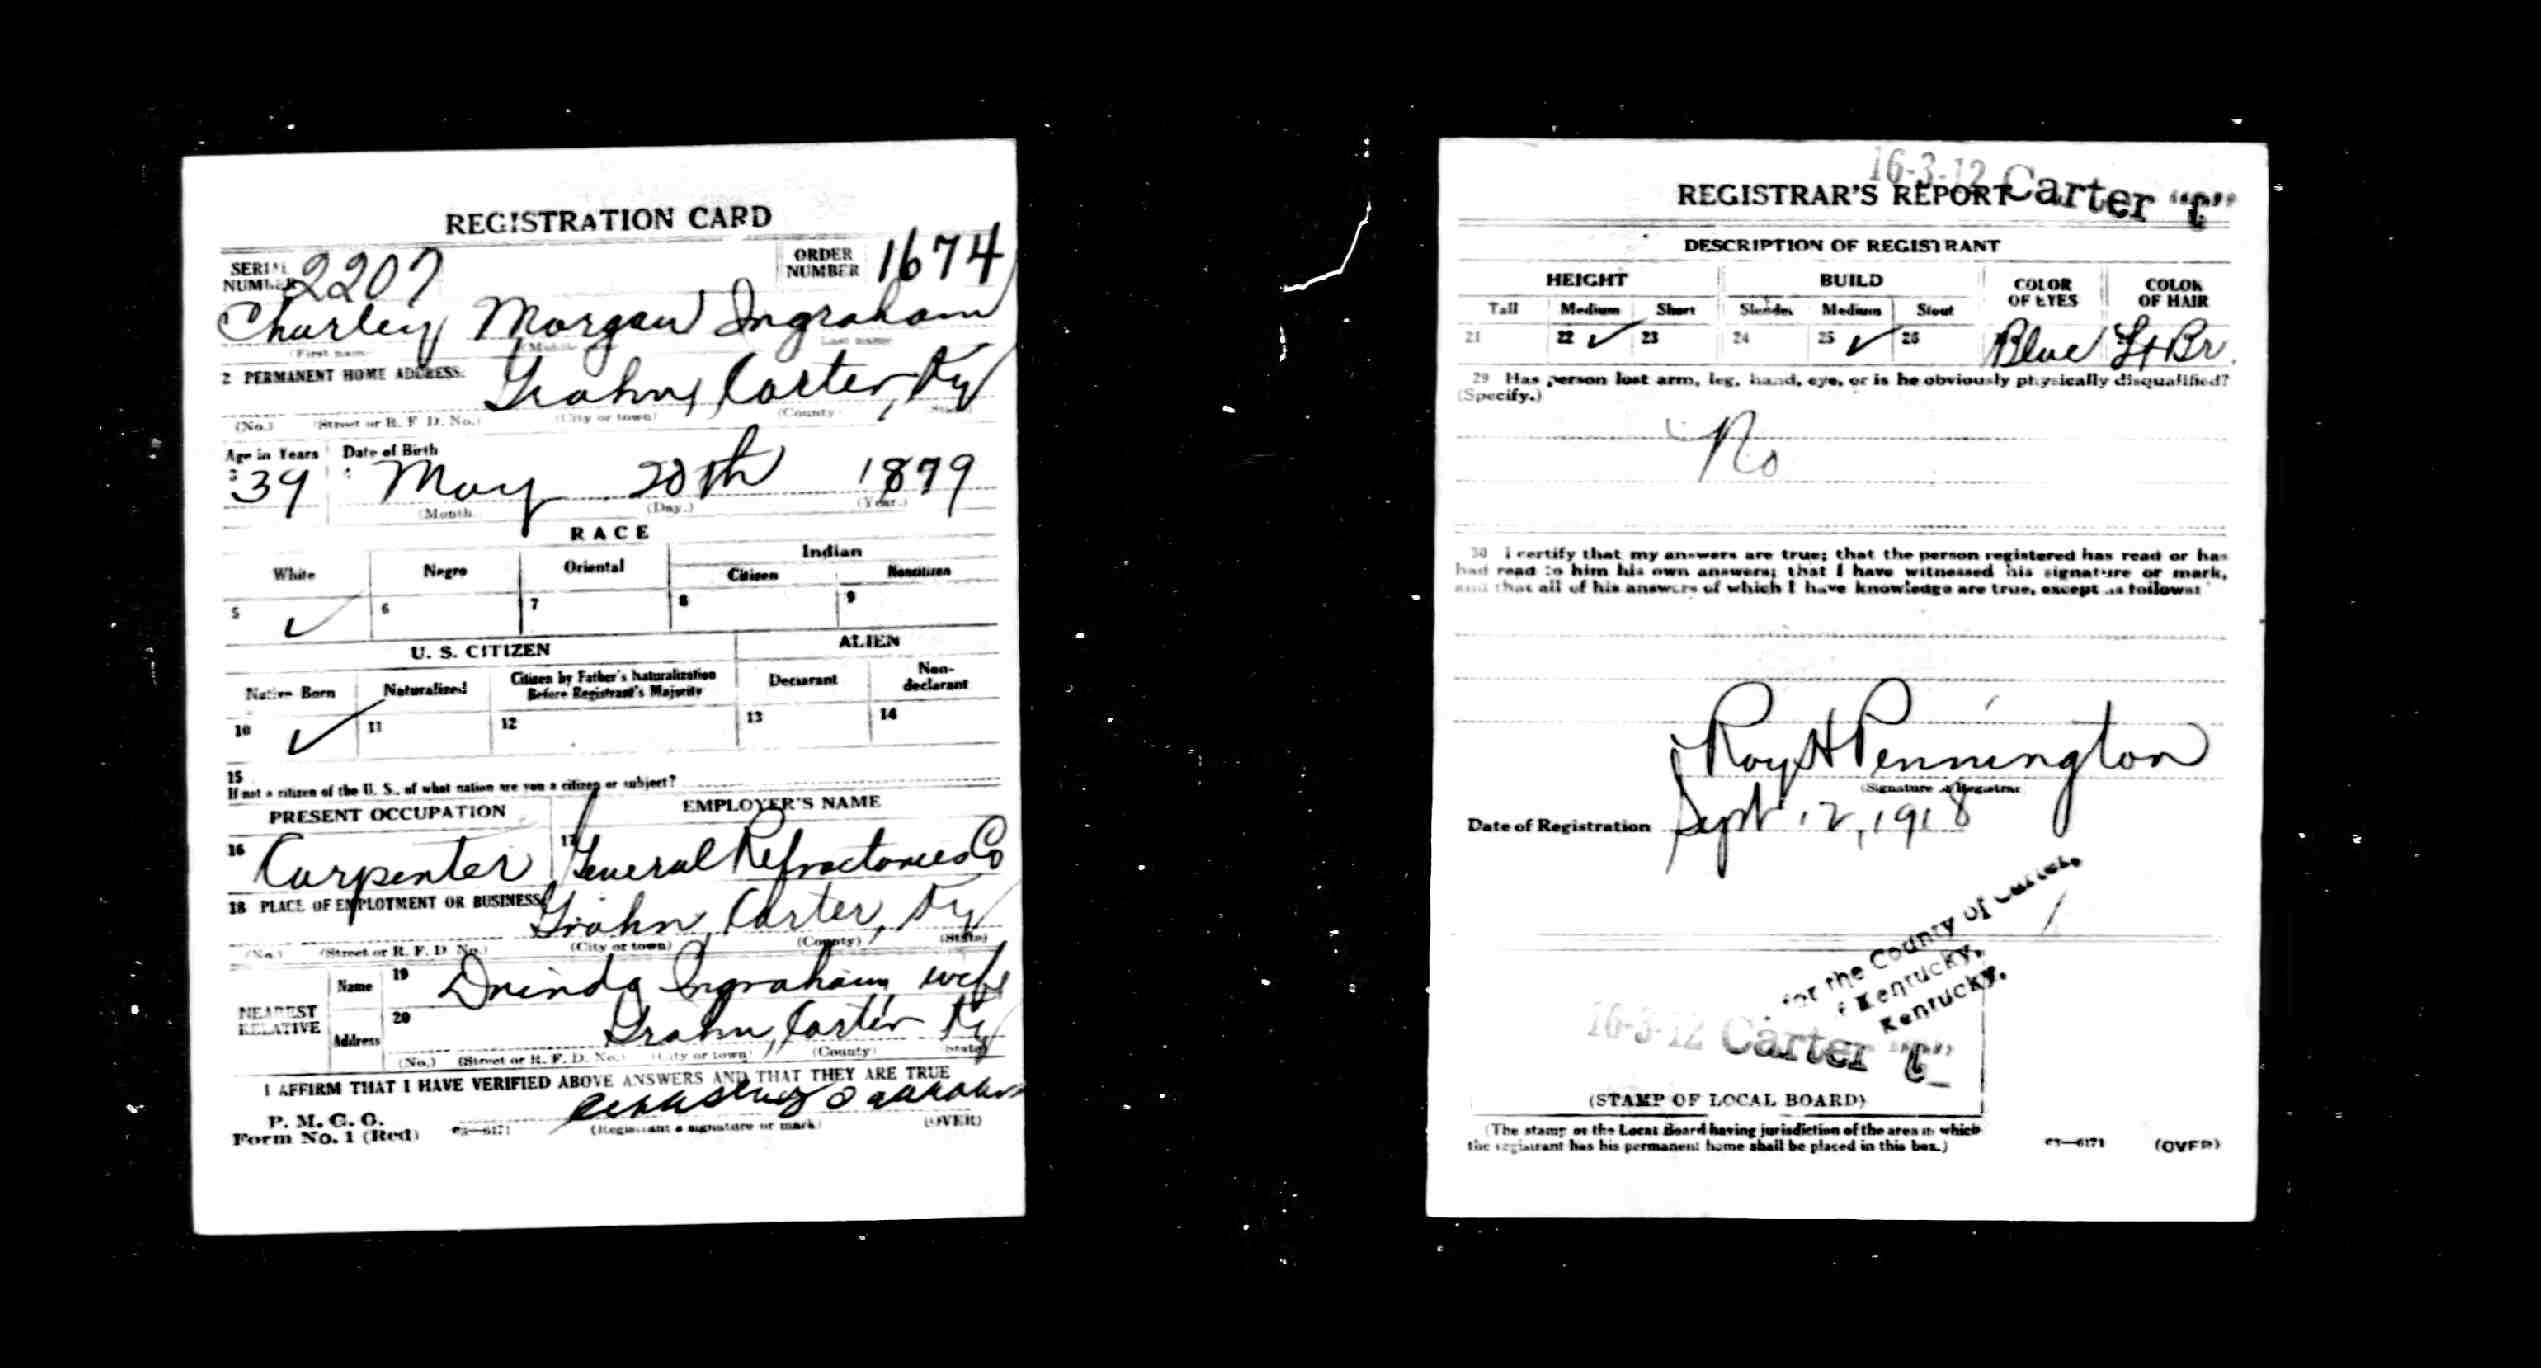 REGISTRATION CARD
SERIAL NUMBER 2207
ORDER NUMBER 1674
Charley Morgan Ingraham
(First name) (Middle) Last name
2 PERMANENT HOME ADDRESS: Grahn, Carter, Ky
(No.) (Street or R. F. D. No.) (City or town) (County) (State)
Age in Years Date of Birth
3 39 4 May 20th 1879
(Month.) (Day.) (Year.)
RACE
White Negro Oriental Indian
Citizen Noncitizen
5 ✓ 6 7 8 9
U. S. CITIZEN ALIEN
Native Born Naturalized Citizen by Father's Naturalization Before Registrant's Majority Declarant Non-declarant
10 ✓ 11 12 13 14
15
If not a citizen of the U. S., of what nation are you a citizen or subject?
PRESENT OCCUPATION EMPLOYER'S NAME
16 Carpenter 17 General Refractories Co
18 PLACE OF EMPLOYMENT OR BUSINESS: Grahn, Carter, Ky
(No.) (Street or R. F. D. No.) (City or town) (County) (State)
NEAREST RELATIVE Name 19 Ingraham wife
Address 20 Grahn, Carter Ky
(No.) (Street or R. F. D. No.) (City or town) (County) (State)
I AFFIRM THAT I HAVE VERIFIED ABOVE ANSWERS AND THAT THEY ARE TRUE
P. M. G. O.
Form No. 1 (Red) 03—6171 (Registrant's signature or mark) (OVER)
16-3-12 Carter "C"
REGISTRAR'S REPORT
DESCRIPTION OF REGISTRANT
HEIGHT BUILD COLOR OF EYES COLOR OF HAIR
Tall Medium Short Slender Medium Stout
21 22 ✓ 23 24 25 ✓ 26 Blue Lt Br.
29 Has person lost arm, leg, hand, eye, or is he obviously physically disqualified?
(Specify.)
No
30 I certify that my answers are true; that the person registered has read or has
had read to him his own answers; that I have witnessed his signature or mark,
and that all of his answers of which I have knowledge are true, except as follows:
Roy H Pennington
(Signature of Registrar)
Date of Registration Sept 12, 1918
for the County of Carter,
f Kentucky,
Kentucky.
16-3-12 Carter "C"
(STAMP OF LOCAL BOARD)
(The stamp of the Local Board having jurisdiction of the area in which
the registrant has his permanent home shall be placed in this box.)
03—6171 (OVER)